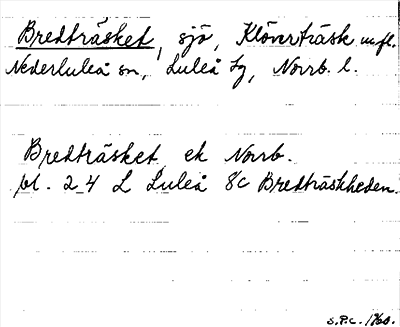 Bredträsket, sjö, Klöverträsk m.fl.
Nederluleå sn, Luleå tg, Norrb. l.
Bredträsket ek Norrb.
bl. 24 L Luleå 8c Bredträskheden.
S.P.C. 1960.